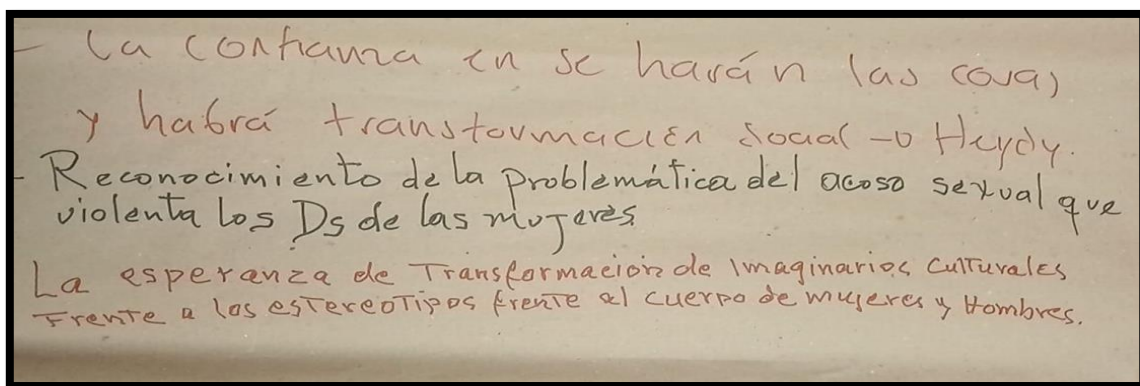 - La confianza en se harán las cosas
y habrá transformación social -o Heydy.
- Reconocimiento de la problemática del acoso sexual que
violenta los Ds de las mujeres
La esperanza de Transformación de Imaginarios Culturales
Frente a los esTereoTipos frente al cuerpo de mujeres y Hombres.